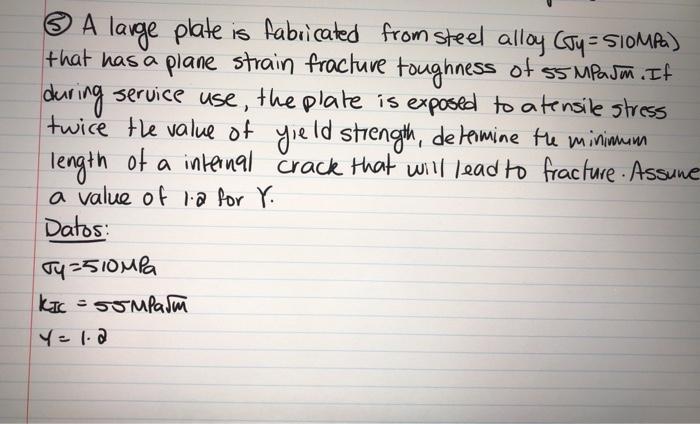 ⑤ A large plate is fabricated from steel alloy (σy=510MPa)
that has a plane strain fracture toughness of 55 MPa√m. If
during service use, the plate is exposed to a tensile stress
twice the value of yield strength, determine the minimum
length of a internal crack that will lead to fracture. Assume
a value of 1.2 for Y.
Datos:
σy=510MPa
kIC = 55MPa√m
Y = 1.2